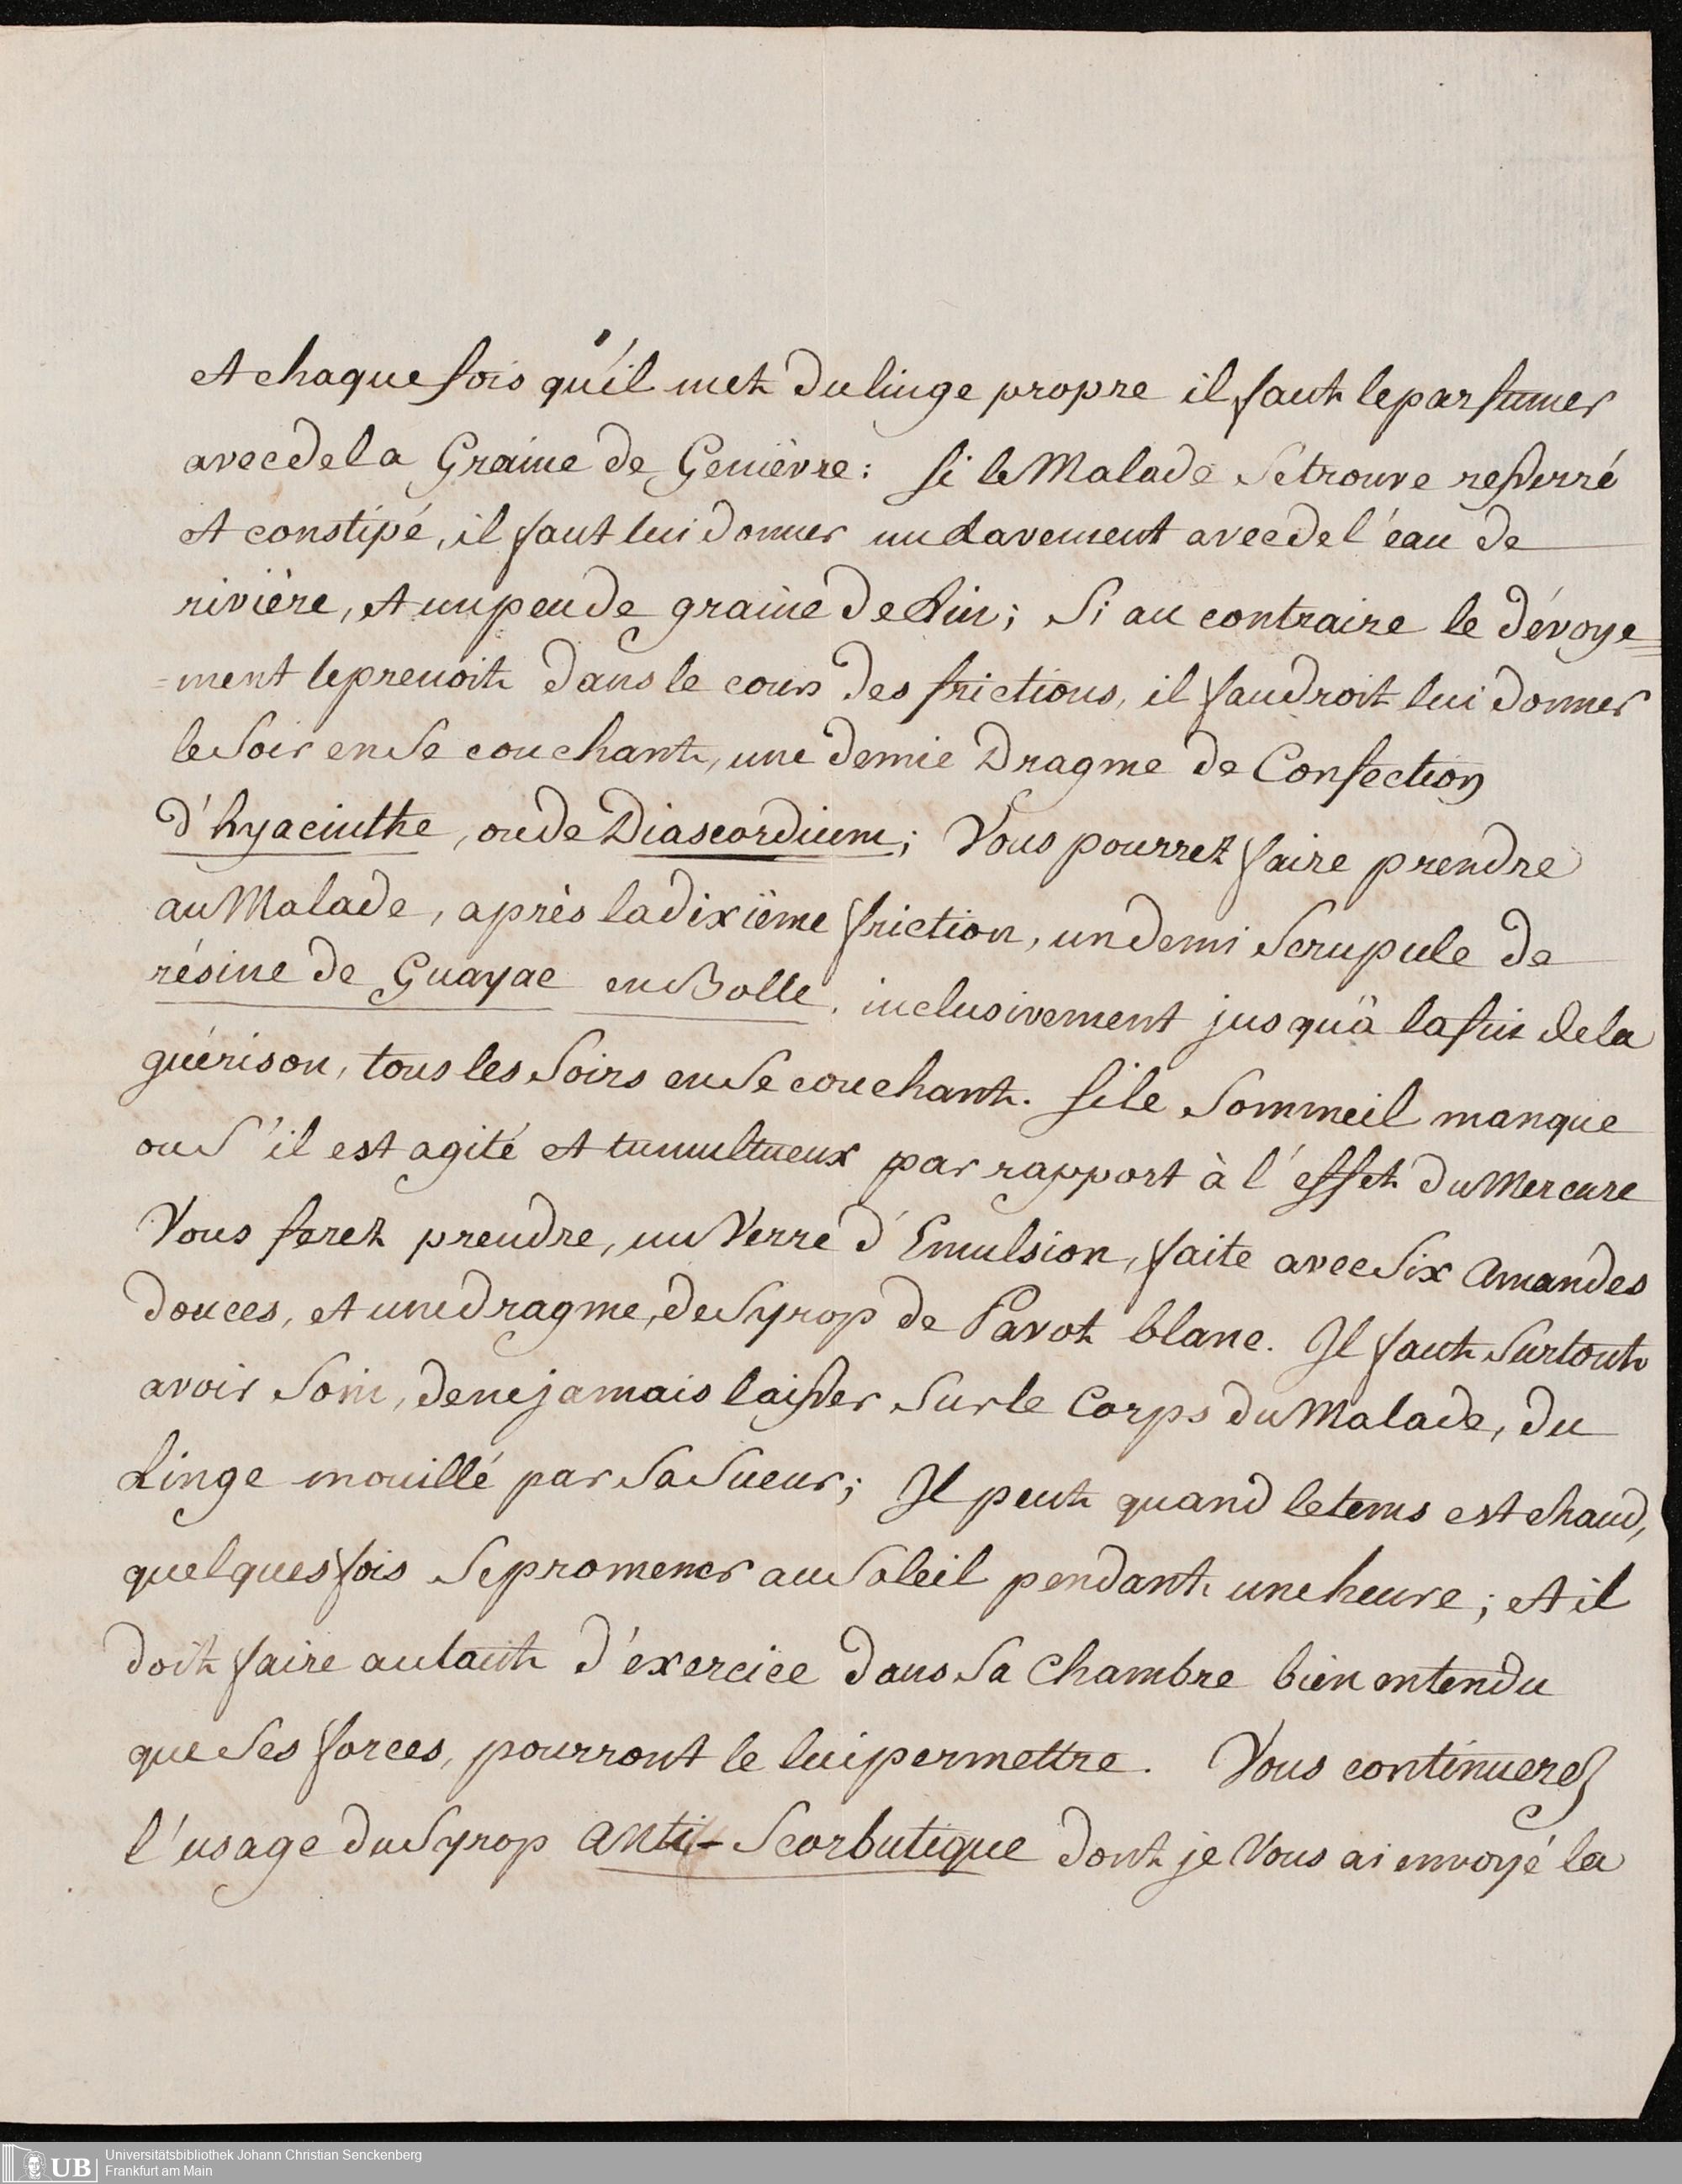 et chaque fois qu'il met du linge propre il faut le parfumer
avec de la Graine de Genièvre: si le Malade se trouve resserré
et constipé, il faut lui donner un Lavement avec de l'éau de
rivière, et un peu de graine de Lin; Si au contraire le dévoye=
=ment le prenoit dans le cours des frictions, il faudroit lui donner
le Soir en Se couchant, une demie Dragme de Confection
d'hyacinthe, ou de Diascordium; Vous pourrez faire prendre
au Malade, après la dixiéme friction, un demi Scrupule de
résine de Guayac en Bolle, inclusivement jusqu'à la fin de la
guérison, tous les Soirs en Se couchant. Si le Sommeil manque
ou S'il est agité et tumultueux par rapport à l'effet du Mercure
Vous ferez prendre, un Verre d'Emulsion, faite avec Six Amandes
douces, et une dragme, de Syrop de Pavot blanc. Il faut Surtout
avoir Soin, de ne jamais laisser Sur le Corps du Malade, du
Linge mouillé par Sa Sueur; Il peut quand le tems est chaud,
quelques fois Se promener au Soleil pendant une heure; et il
doit faire autant d'éxercice dans Sa Chambre bien entendu
que Ses forces, pourront le lui permettre. Vous continuerez
l'usage du Syrop Anti-Scorbutique dont je Vous ai envoyé la
UB
Universitätsbibliothek Johann Christian Senckenberg
Frankfurt am Main